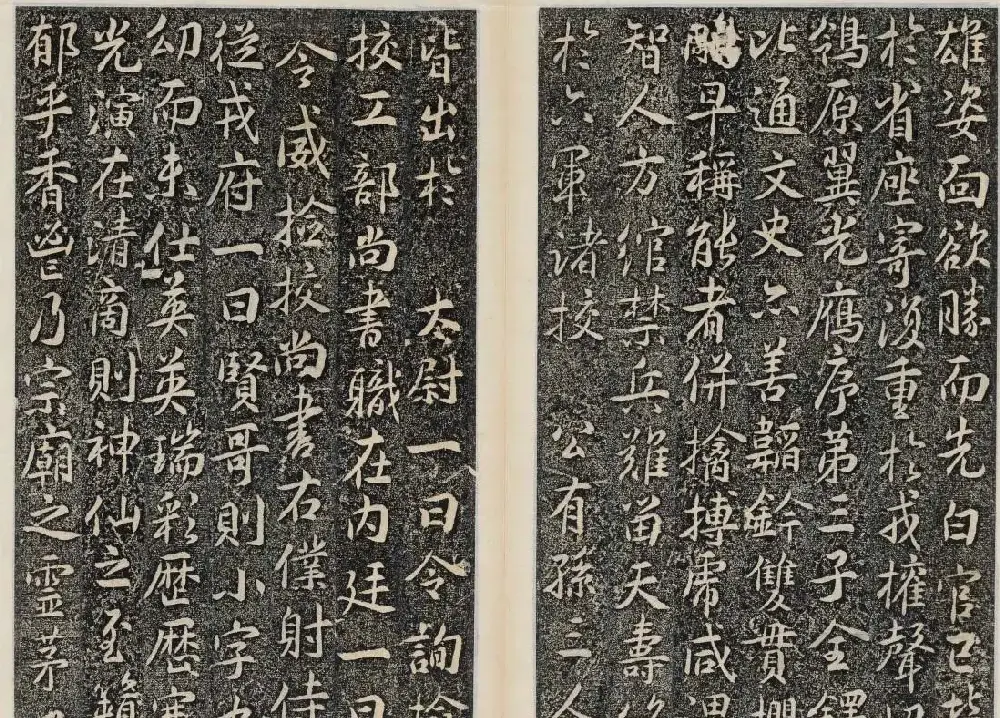 雄姿面欲勝而先白官已
於省座寄復重於戎擁聲
鴒原翼光鴈序第三子全鐸
比通文史六善韜鈐雙貫
早稱能者併擒搏席咸
智人方綰禁兵難留天壽
於六軍諸挍 公有孫三人
皆出於 太尉一曰令詢撿
挍工部尚書職在内廷一曰
令威撿挍尚書右僕射侍
從戎府一曰賢哥則小字
幼而未仕英英瑞彩歴歴
光演在清商則神仙之
郁乎香㔶乃宗廟之霊茅